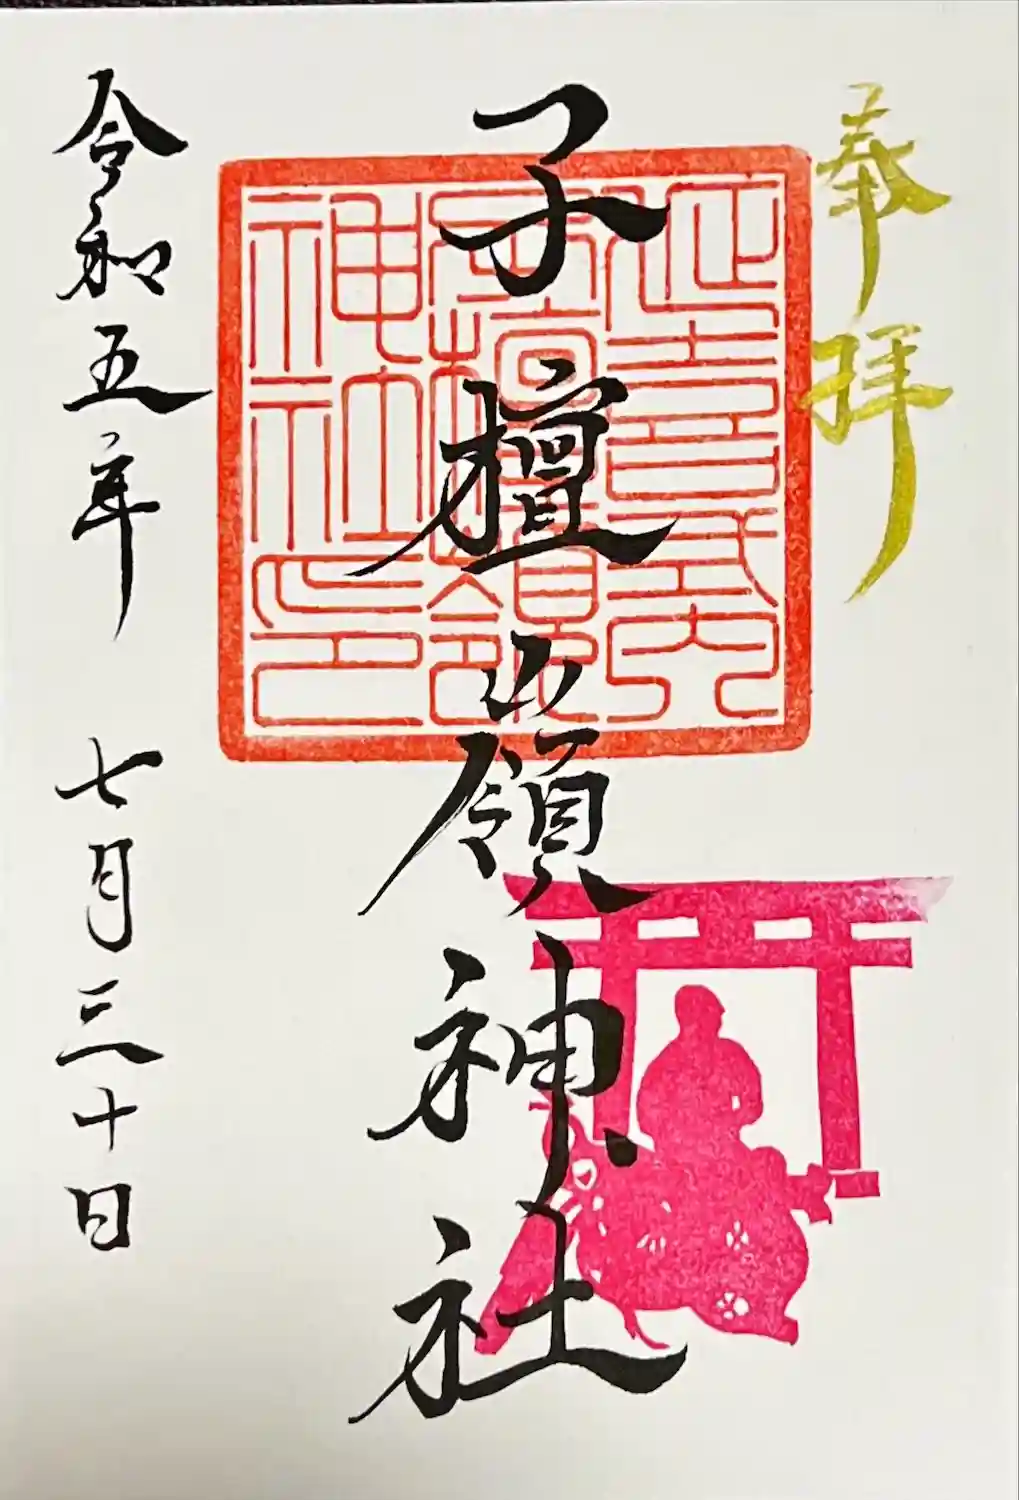 奉拝
子檀嶺神社
延喜式内
子檀嶺
神社印
令和五年 七月三十日